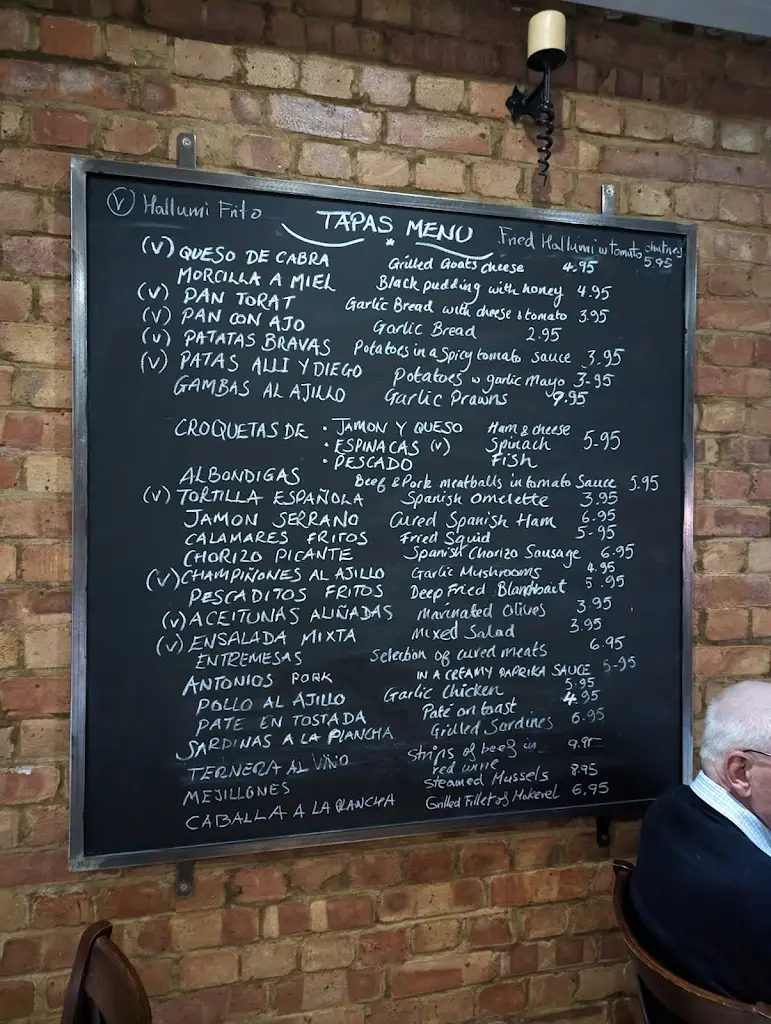 TAPAS MENU
(V) Hallumi Frito Fried Hallumi w tomato chutney 5.95
(V) QUESO DE CABRA Grilled Goats cheese 4.95
MORCILLA A MIEL Black pudding with honey 4.95
(V) PAN TORAT Garlic Bread with cheese & tomato 3.95
(V) PAN CON AJO Garlic Bread 2.95
(V) PATATAS BRAVAS Potatoes in a Spicy tomato sauce 3.95
(V) PATAS ALLI Y DIEGO Potatoes w garlic mayo 3-95
GAMBAS AL AJILLO Garlic Prawns 9.95
CROQUETAS DE • JAMON Y QUESO Ham & cheese
• ESPINACAS (V) Spinach 5-95
• PESCADO Fish
ALBONDIGAS Beef & Pork meatballs in tomato Sauce 5.95
(V) TORTILLA ESPAÑOLA Spanish Omelette 3.95
JAMON SERRANO Cured Spanish Ham 6.95
CALAMARES FRITOS Fried Squid 5-95
CHORIZO PICANTE Spanish Chorizo Sausage 6.95
(V) CHAMPIÑONES AL AJILLO Garlic Mushrooms 4.95
PESCADITOS FRITOS Deep Fried Blanchbait 5.95
(V) ACEITUNAS ALIÑADAS Marinated Olives 3.95
(V) ENSALADA MIXTA Mixed Salad 3.95
ENTREMESAS Selection of cured meats 6.95
ANTONIOS PORK IN A CREAMY PAPRIKA SAUCE 5-95
POLLO AL AJILLO Garlic Chicken 5.95
PATE EN TOSTADA Paté on toast 4.95
SARDINAS A LA PLANCHA Grilled Sardines 6.95
TERNERA AL VINO Strips of beef in red wine 9.95
MEJILLONES Steamed Mussels 8.95
CABALLA A LA PLANCHA Grilled Fillet of Makerel 6,95